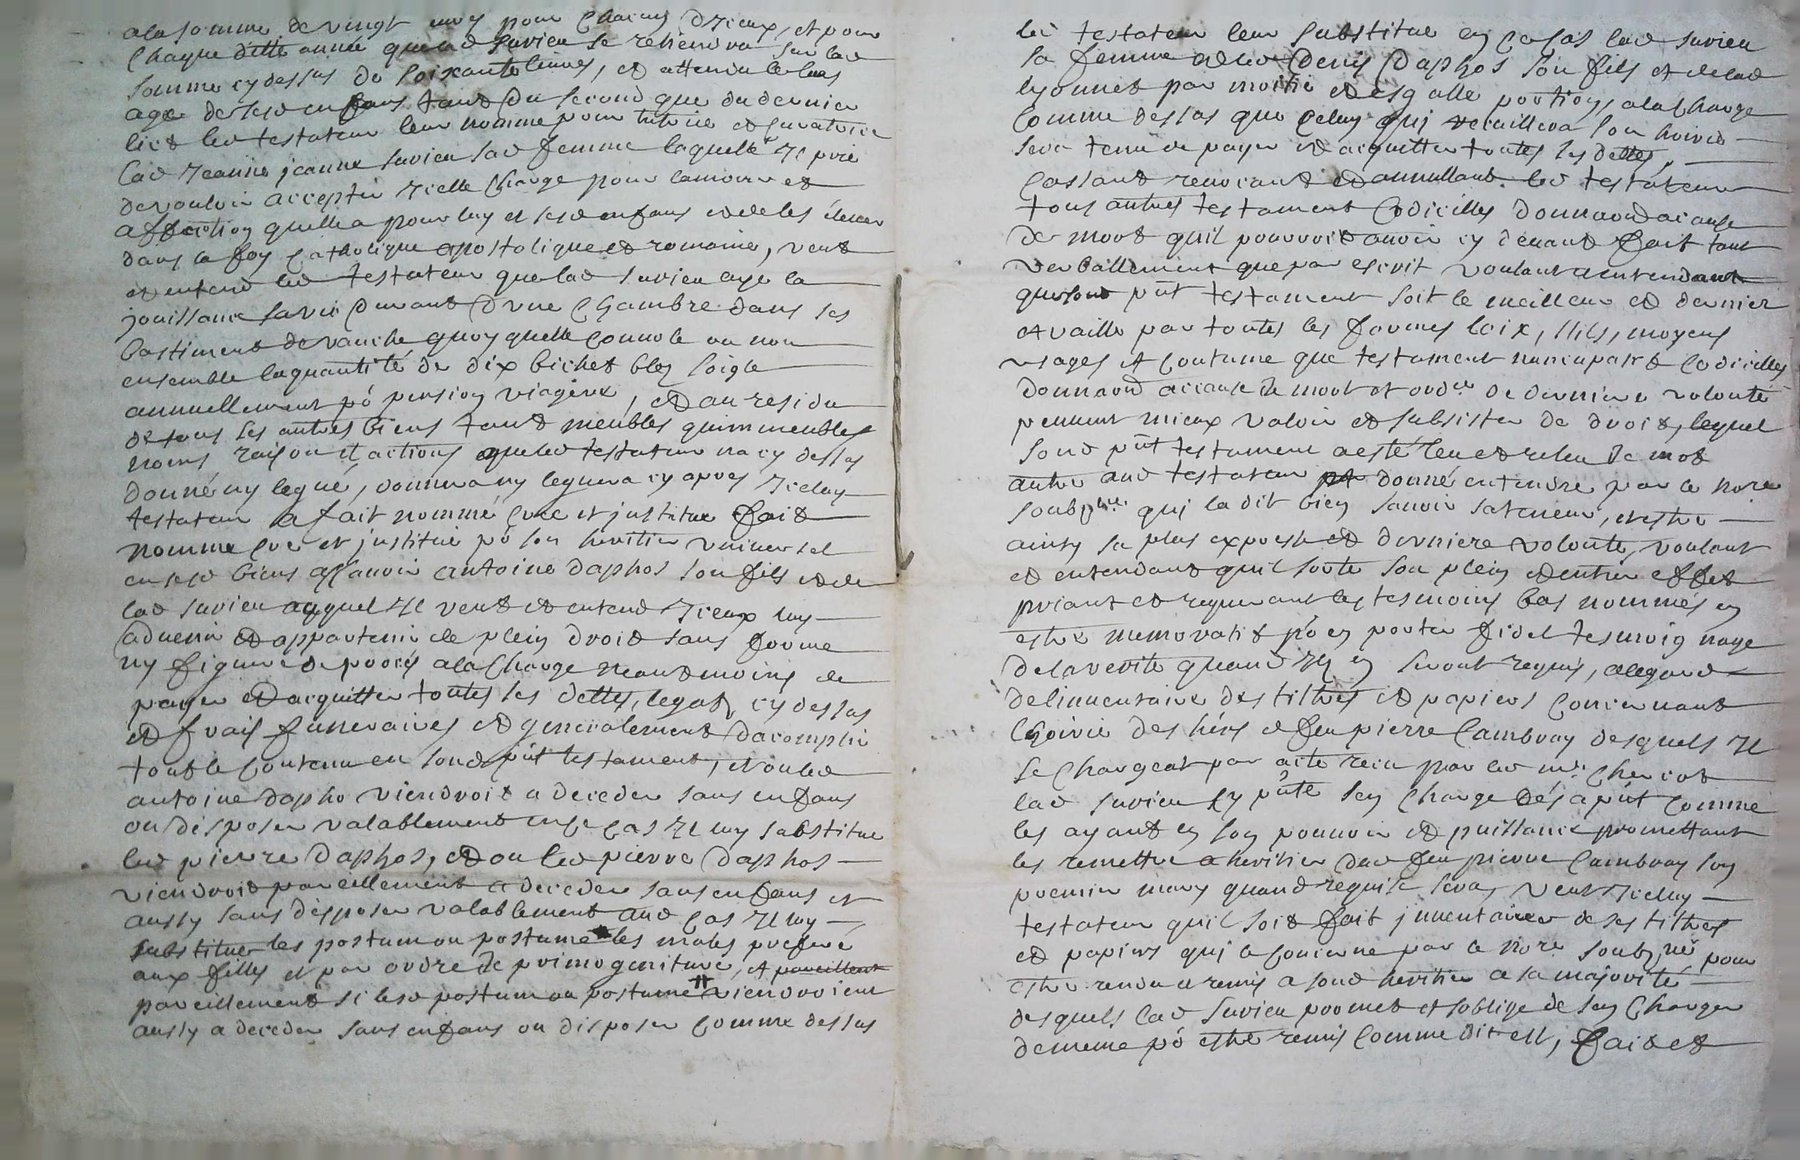 ala somme de vingt pour chacun d'iceux, et pour
chaque ditte année que lad Savieu se retiendra sur lad
somme cy dessus de soixante livres, et attendu le bas
age de sesd enfans tant du second que du dernier
lict led testateur leur nomme pour tutrice et curatrice
lad jeanne Savieu sad femme laquelle il prie
de vouloir accepter icelle charge pour l'amour et
affection quelle a pour luy et sesd enfans et de les élever
dans la foy catholique apostolique et romaine, veut
et entend led testateur que lad Savieu aye la
jouissance sa vie durant d'une chambre dans ses
bastiments de vanche quoy quelle convole ou non
ensemble la quantité de dix bichet bley soigle
annuellement pô pension viagere, et au residu
de tous ses autres biens tant meubles qu'immeubles
noms raison et actions que led testateur na cy dessus
donné ny legué, donnera ny leguera cy apres icelluy
testateur a fait nommé créé et justitue fait
nomme cree et justitue pô son héritier universel
en sesd biens asçavoir antoine daphos son fils et de
lad Savieu auquel il veut et entend iceux luy
advenir et appartenir de plein droit sans forme
ny figure de procès ala charge neantmoins de
payer et acquitter toutes ses dettes, legats cy dessus
et frais funeraires et generalement d'acomplir
tout le contenu en sond pñt testament, et ou led
antoine dapho viendroit a deceder sans enfans
ou disposer valablement en ce cas il luy substitue
led pierre daphos, et ou led pierre daphos
viendroit pareillement a deceder sans enfans et
aussy sans disposer valablement aud cas il luy
substitue les postum ou postume les males preferé
aux filles et par ordre de primogeniture, et pareillem
pareillement si lesd postum ou postume viendroient
aussy a deceder sans enfans ou disposer comme dessus
led testateur leur substitue en ce cas lad Savieu
sa femme et led Denis Daphos son fils et de lad
lyonnet par moitié et esgalle portion, ala charge
comme dessus que celuy qui recuillera son hoirie
sera tenu de payer et acquitter toutes ses dettes,
cassant revocant et annullant led testateur
tous autres testament codicilles donnaon a cause
de mort quil pourroit avoir cy devant fait tant
verballement que par escrit voulant et entendant
que sond pñt testament soit le meilleur et dernier
et vaille par toutes les formes loix, stils, moyens
usages et coutume que testament nuncupatif codicilles
donnaon a cause de mort et ordce de derniere volonté
peuvent mieux valoir et subsister de droit, lequel
sond pñt testament a esté leu et releu de mot
autre aud testateur donné entendre par le nore
soubsné qui la dit bien savoir sa teneur, et estre
ainsy sa plus expresse et derniere volonté, voulant
et entendant quil sorte son plein et entier effet
priant et requerant les tesmoins bas nommés en
estre memoratif pô en porter fidel tesmoignage
de la verité quand ils en seront requis, alegard
de linventaire des tiltres et papiers concernant
lhoirie des héirs de feu pierre Cambray desquels il
se chargeat par acte receu par led me Chercot
lad Savieu cy pñte sen charge dés a pñt comme
les ayant en son pouvoir et puissance promettant
les remettre a heritier dud feu pierre Cambray son
premier mary quand requise sera, veut icelluy
testateur quil soit fait inventaire de ses tiltres
et papiers qui le concerne par le nore soubsné pour
estre rendu et remis a sond heritier a sa majorité
desquels lad Savieu promet et soblige de sen charger
de meme pô estre remis comme dit est, fait et